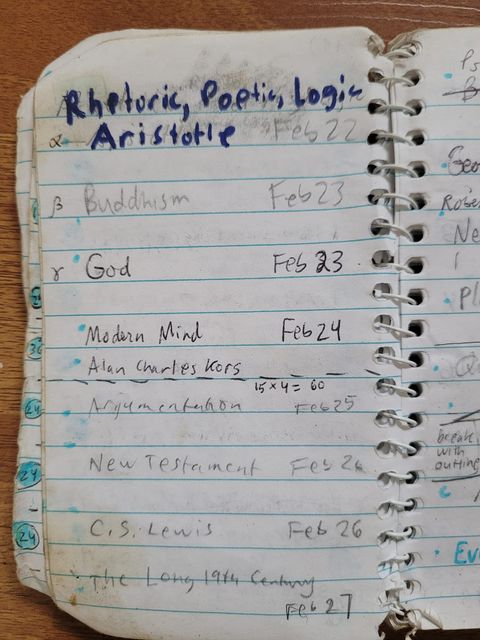 Rhetoric, Poetic, Logic
α Aristotle Feb 22
β Buddhism Feb 23
γ God Feb 23
Modern Mind Feb 24
Alan Charles Kors
15 × 4 = 60
Argumentation Feb 25
New Testament Feb 26
C.S. Lewis Feb 26
The Long 19th Century
Feb 27
24
24
24
Ps
Geo
Rober
Ne
Pl
Qu
break
with
outling
Ev